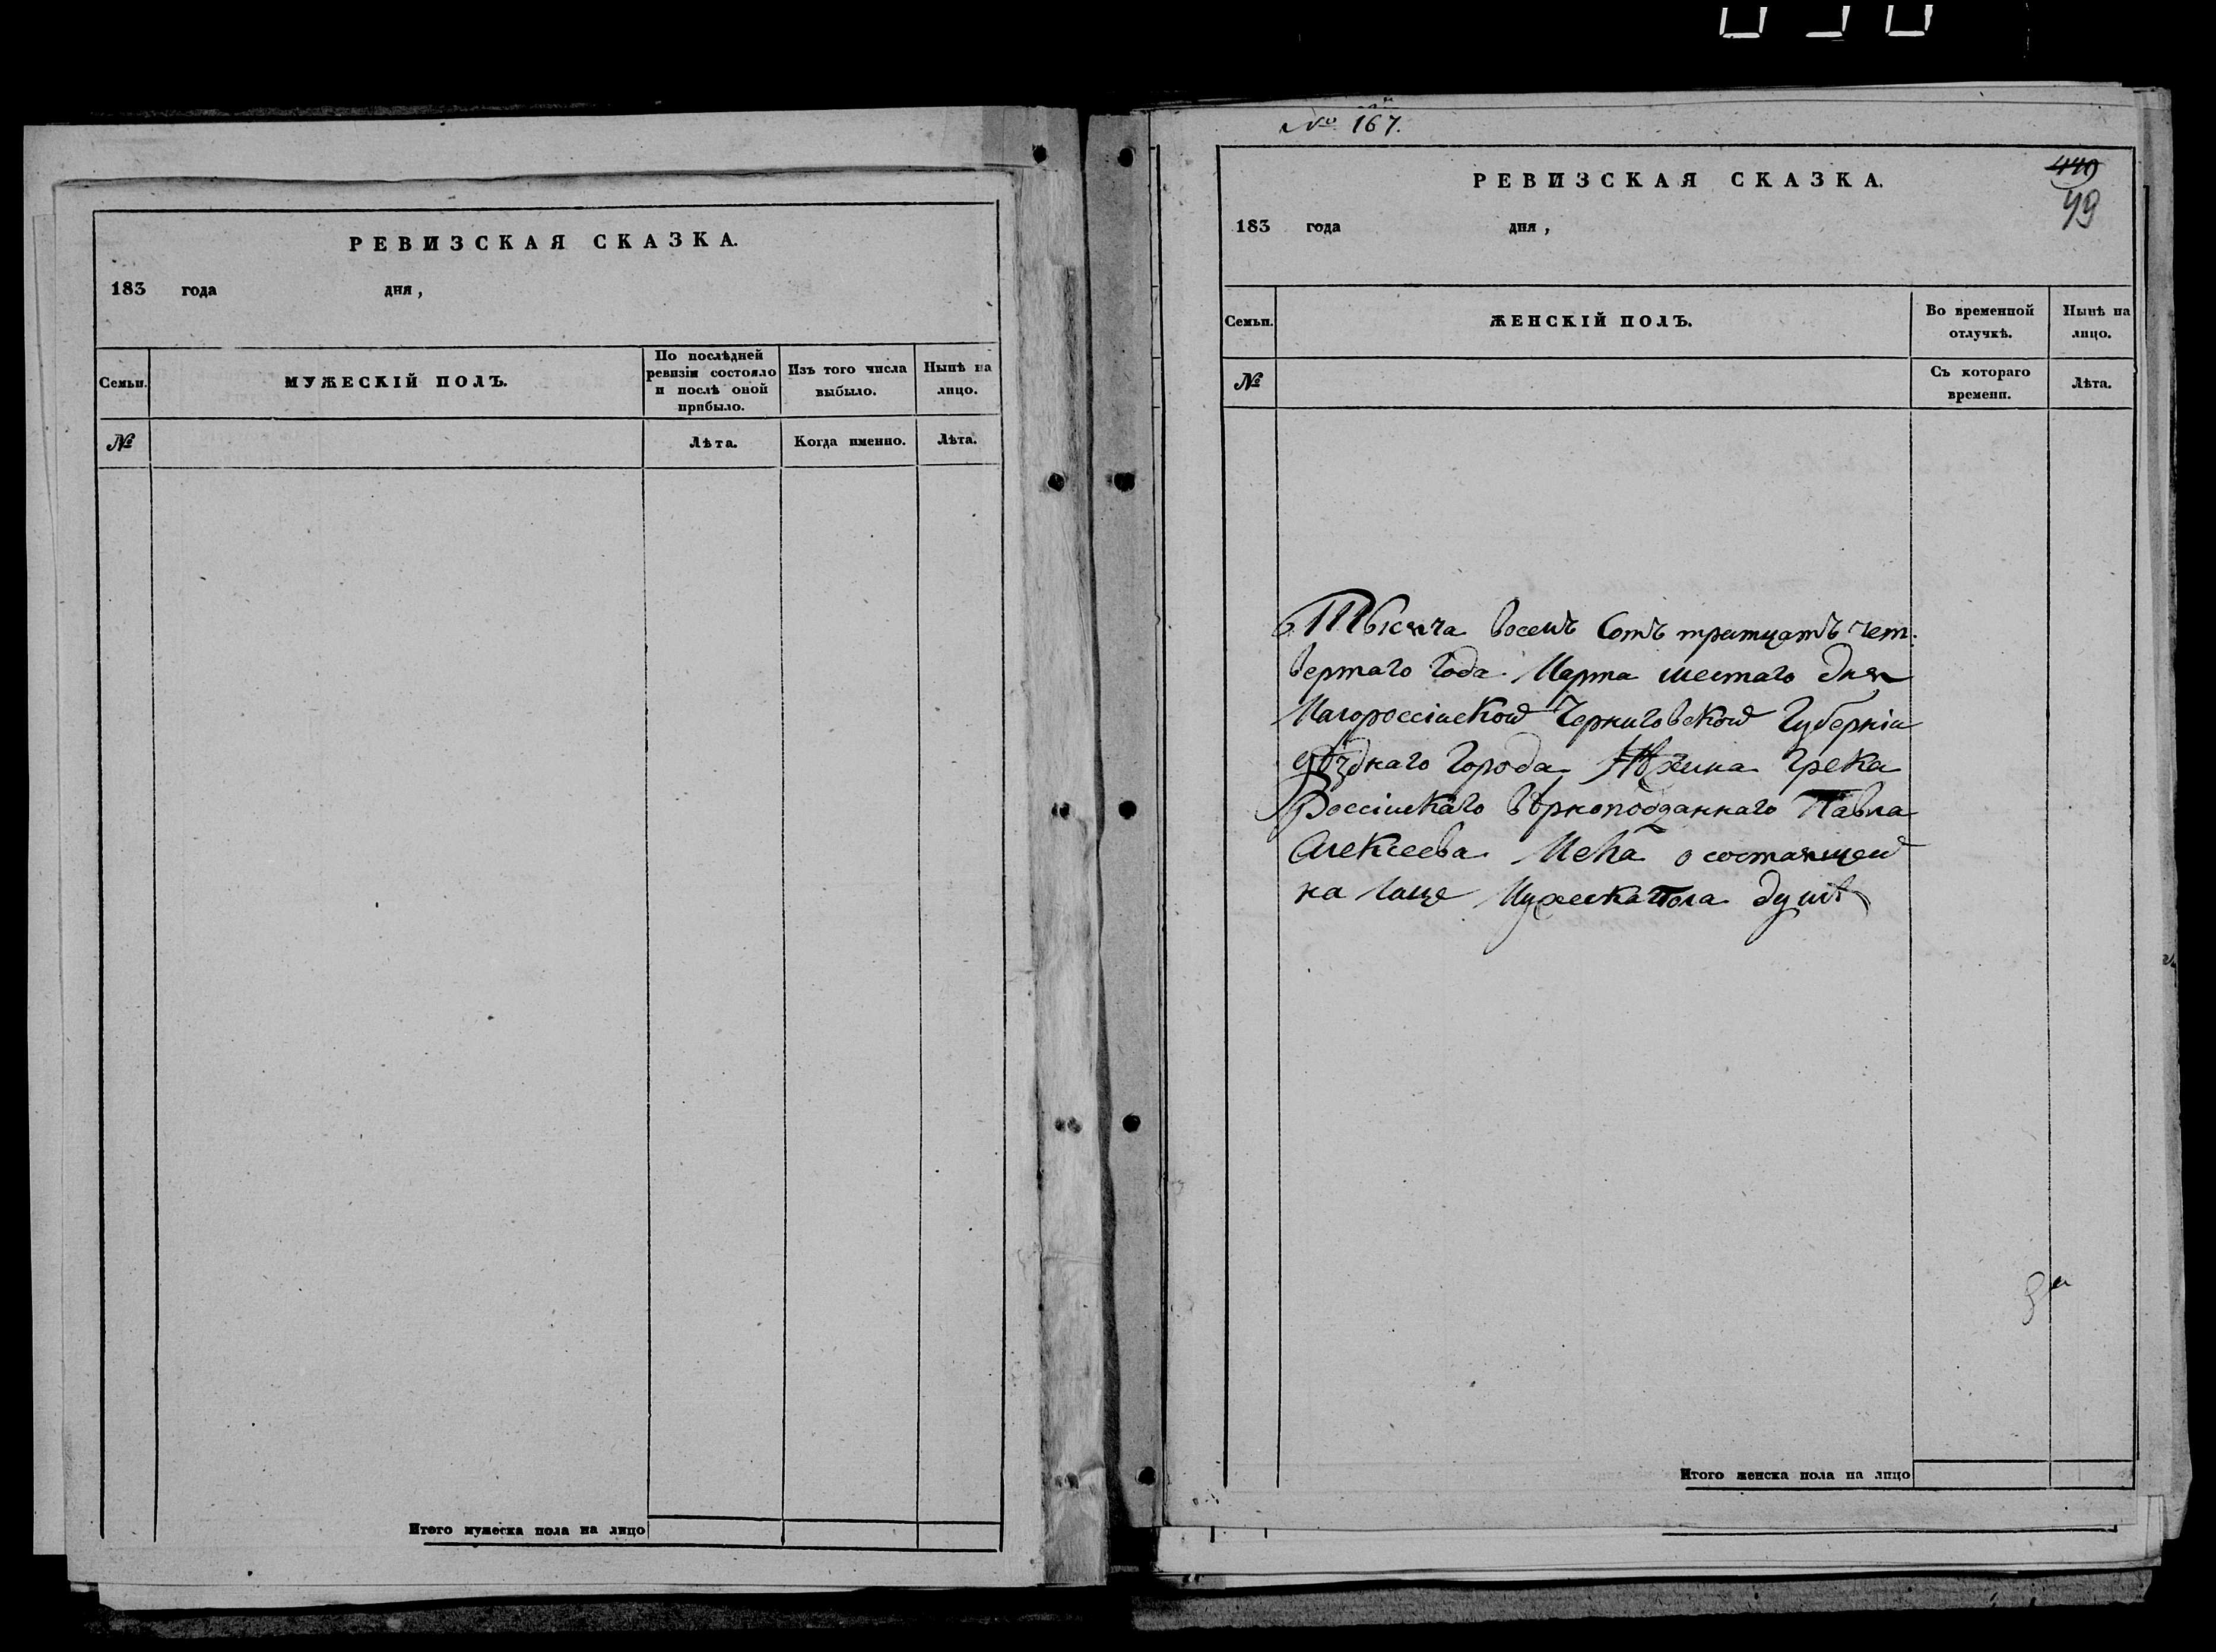 РЕВИЗСКАЯ СКАЗКА.
183 года дня,
Семьи.
МУЖЕСКІЙ ПОЛЪ.
По послѣдней ревизіи состояло и послѣ оной прибыло.
Изъ того числа выбыло.
Нынѣ на лицо.
№
Лѣта.
Когда именно.
Лѣта.
Итого мужеска пола на лицо
№ 167.
РЕВИЗСКАЯ СКАЗКА.
449
49
183 года дня,
Семьи.
ЖЕНСКІЙ ПОЛЪ.
Во временной отлучкѣ.
Нынѣ на лицо.
№
Съ котораго времени.
Лѣта.
Тысяча восемъ Сотъ тритцатъ чет:
вертаго Года Марта шестаго дня
Малороссійской Черниговской Губерніи
уѣзднаго Города Нѣжина Грека
Россійскаго вѣрноподданнаго Павла
Алексеева Мека о состаящей
на лице Мужеска Пола душѣ
Итого женска пола на лицо